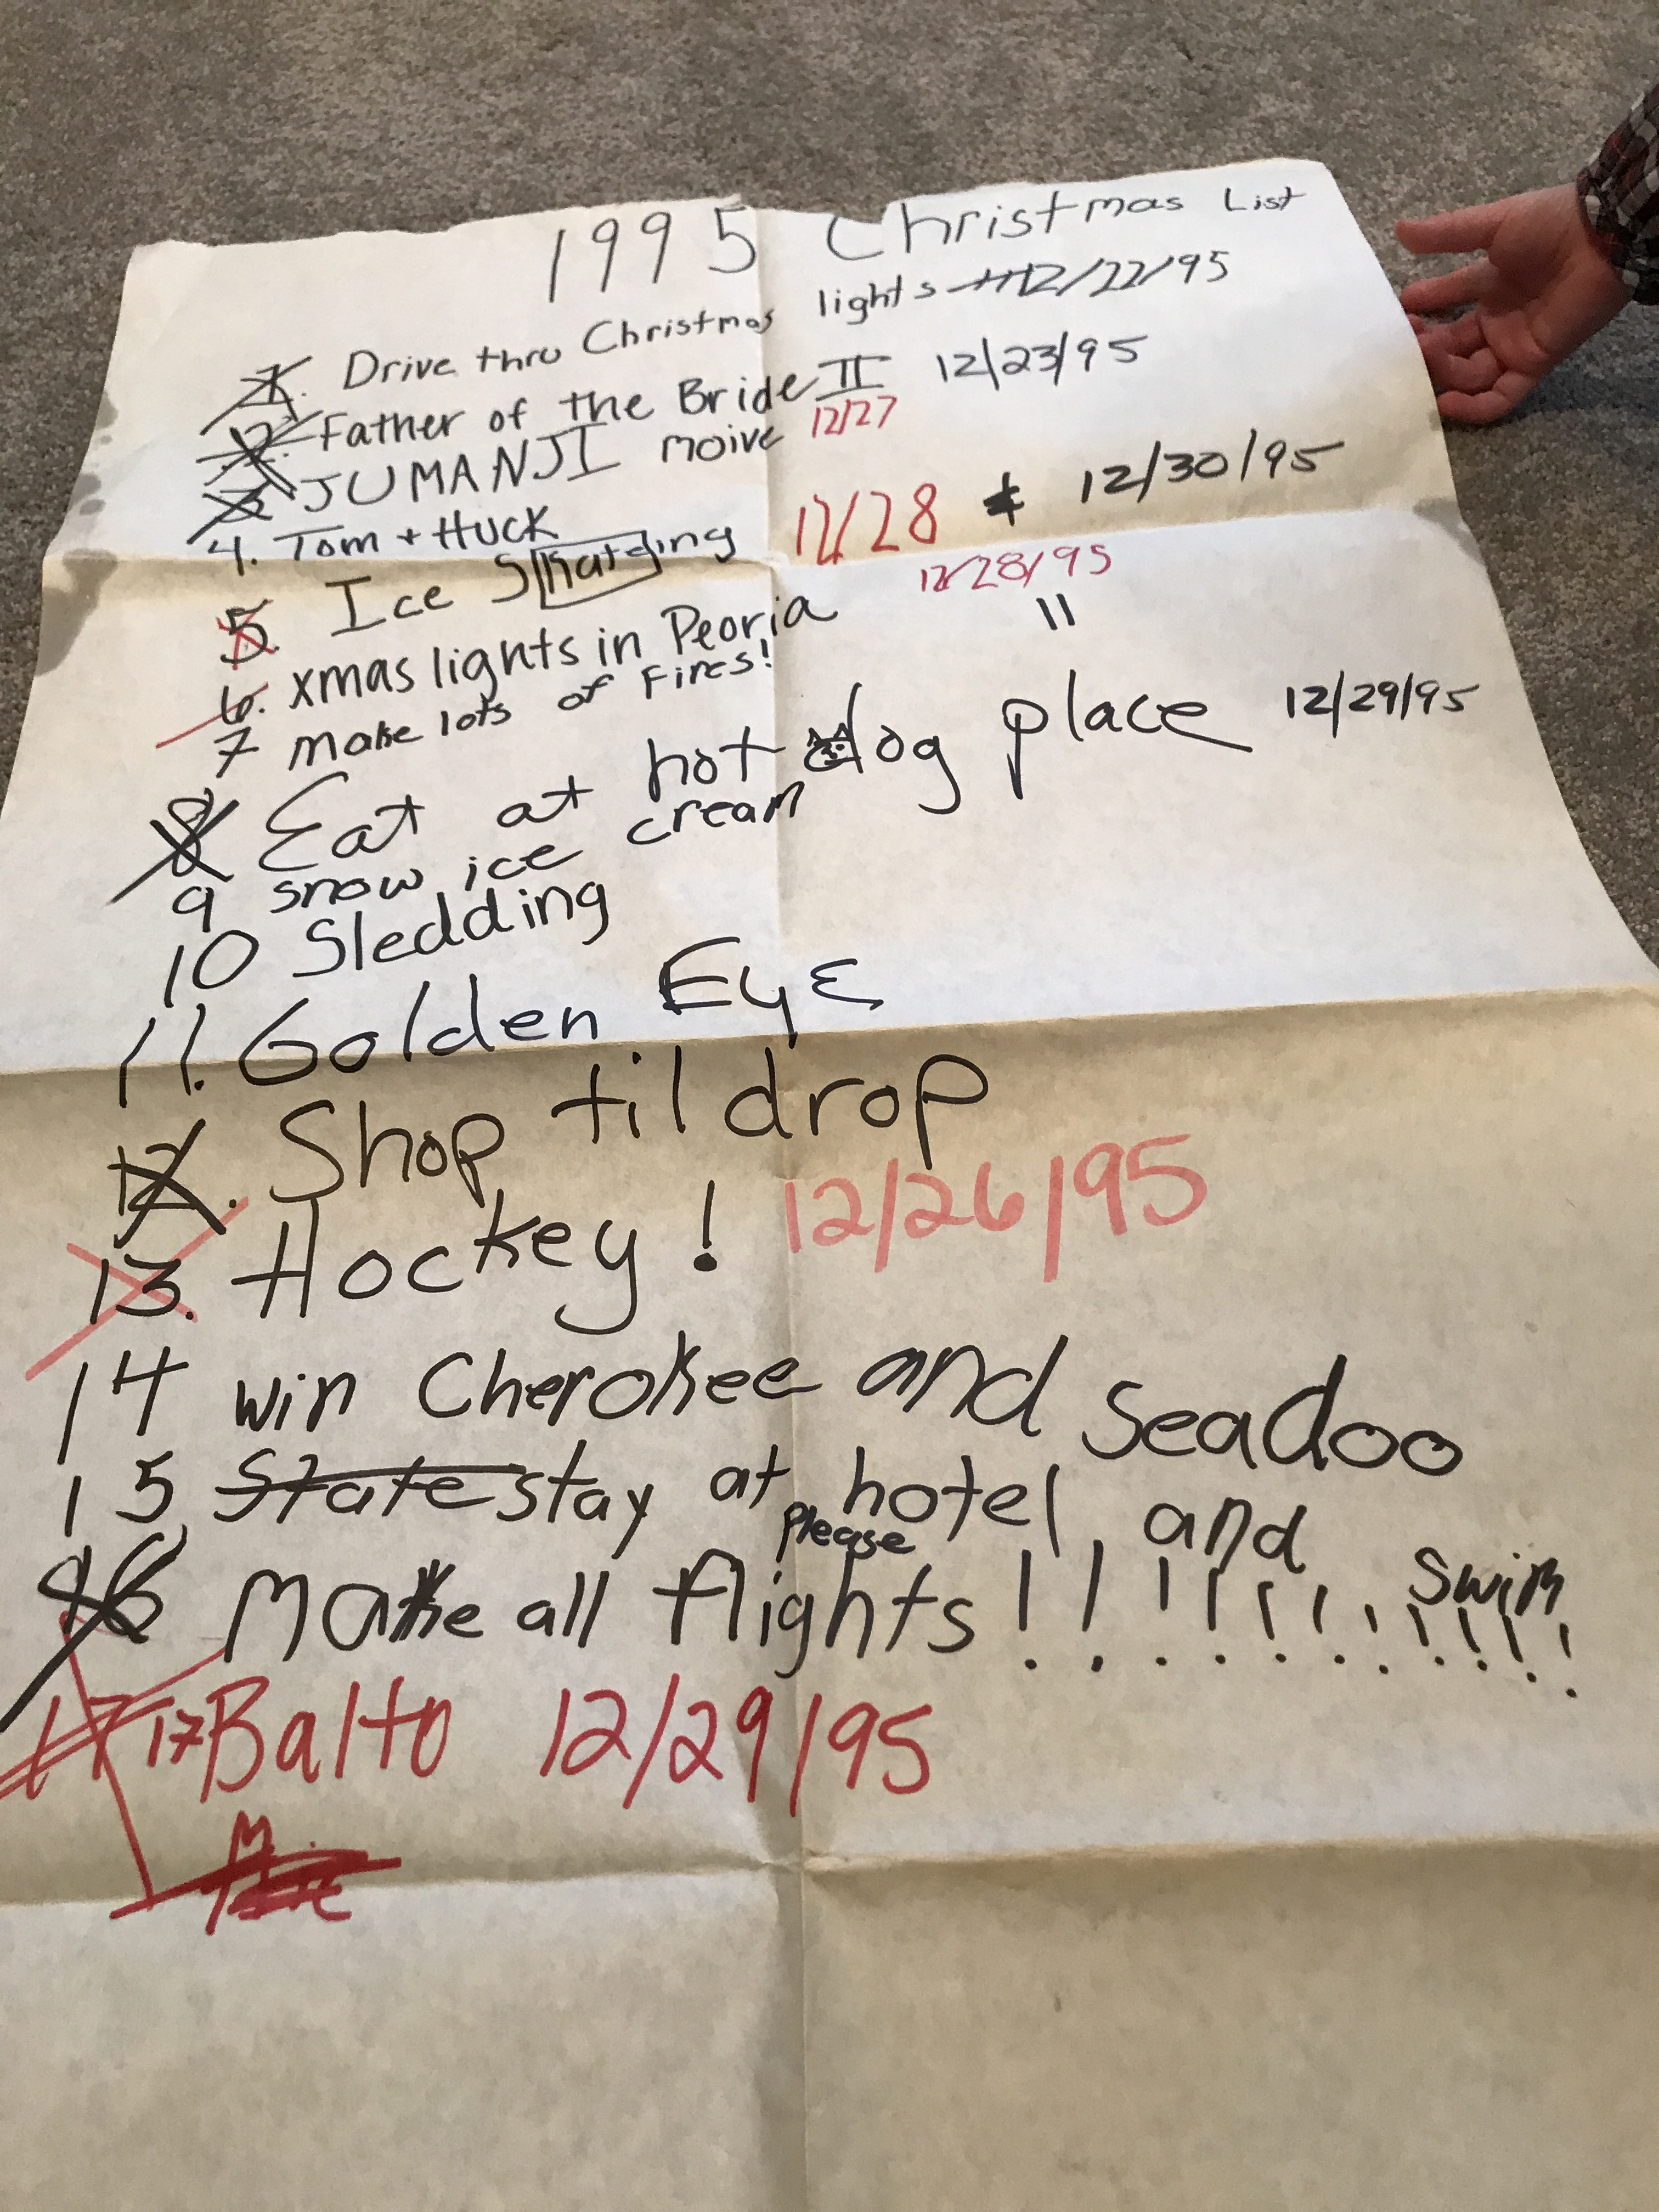 1995 Christmas List
1. Drive thru Christmas lights 12/22/95
2. Father of the Bride II 12/23/95
3 JUMANJI moive 12/27
4. Tom + Huck
5. Ice Skating 12/28 & 12/30/95
6. xmas lights in Peoria 12/28/95
7 make lots of Fires! "
8 Eat at hot dog place 12/29/95
9 snow ice cream
10 Sledding
11. Golden EyE
12. Shop til drop
13. Hockey! 12/26/95
14 win Cherokee and seadoo
15 State stay at hotel and swim
please
16 Make all flights!!!!!!!!!!!
17 17 Balto 12/29/95